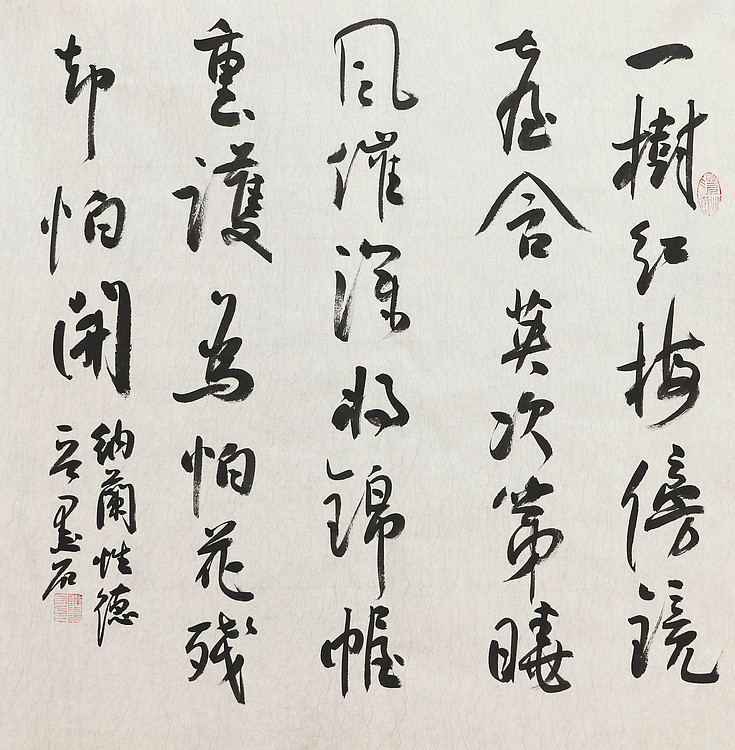 一樹紅梅傍鏡
臺含英次第曉
風催深將錦幄
重〻護為怕花殘
却怕開
納蘭性德
墨石